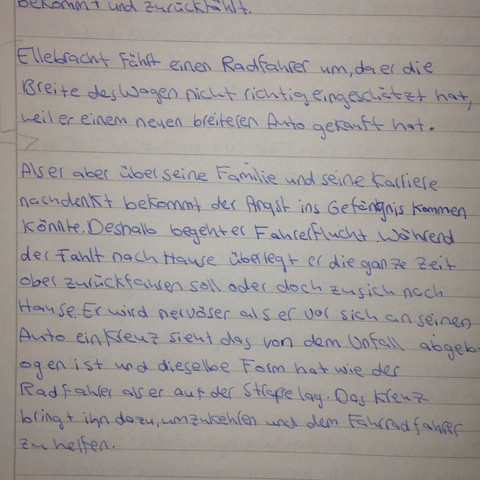 bekommt und zurückfährt.
Ellebracht fährt einen Radfahrer um, da er die
Breite des Wagen nicht richtig eingeschätzt hat,
weil er einem neuen breiteren Auto gekauft hat.
Als er aber über seine Familie und seine Karriere
nachdenkt bekommt der Angst ins Gefängnis kommen
könnte. Deshalb begeht er Fahrerflucht. Während
der Fahrt nach Hause überlegt er die ganze Zeit
ober zurückfahren soll oder doch zu sich nach
Hause. Er wird nervöser als er vor sich an seinen
Auto ein Kreuz sieht das von dem Unfall abgeb-
ogen ist und dieselbe Form hat wie der
Radfahrer als er auf der Straße lag. Das Kreuz
bringt ihn dazu, umzukehren und dem Fahrradfahrer
zu helfen.